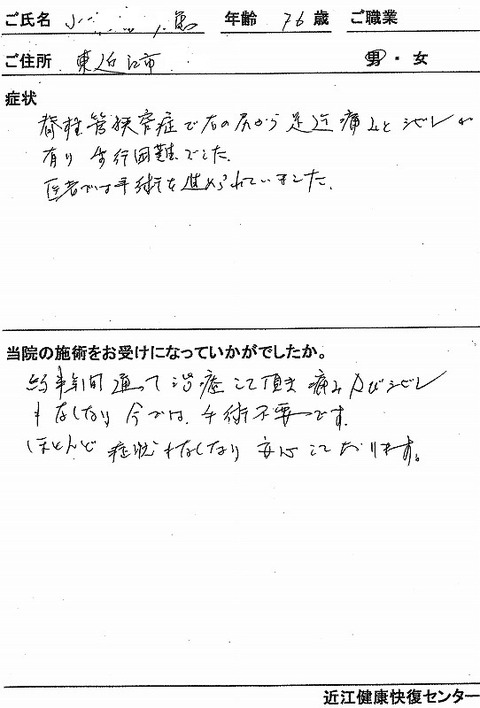 ご氏名 年齢 76 歳 ご職業
ご住所 東近江市 男・女
症状
脊柱管狭窄症で右の尻から足迄痛みとシビレが
有り歩行困難でした。
医者では手術を進められていました。
当院の施術をお受けになっていかがでしたか。
約 年間通って治療して頂き痛み及びシビレ
もなくなり今では、手術不要です。
ほとんど症状もなくなり安心しております。
近江健康快復センター